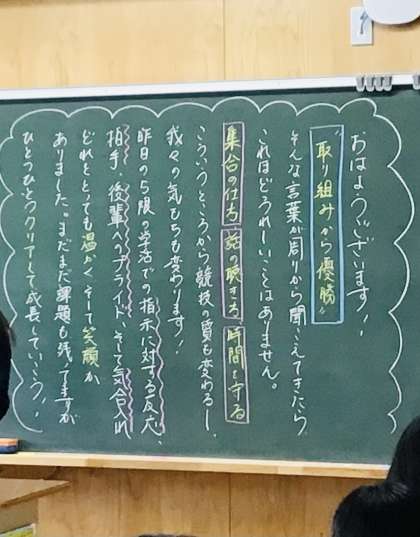 おはようございます！
"取り組みから優勝"
そんな言葉が周りから聞こえてきたら
これほどうれしいことはありません。
集合の仕方 話の聴き方 時間を守る
こういうところから競技の質も変わるし、
我々の気もちも変わります！
昨日の5限の学活での指示に対する反応、
拍手、後輩へのプライド、そして気合入れ
どれをとっても温かく、そして笑顔が
ありました。まだまだ課題も残ってますが
ひとつひとつクリアして成長していこう！